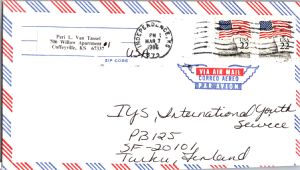 Peri L. Van Tassel
700 Willow Apartment #1
Coffeyville, KS 67337
ZIP CODE
USA
INDEPENDENCE, KS
PM
MAR
1986
USA 22
USA 22
VIA AIR MAIL
CORREO AEREO
PAR AVION
IYS, International Youth
Service
PB125
SF-20101,
Turku, Finland